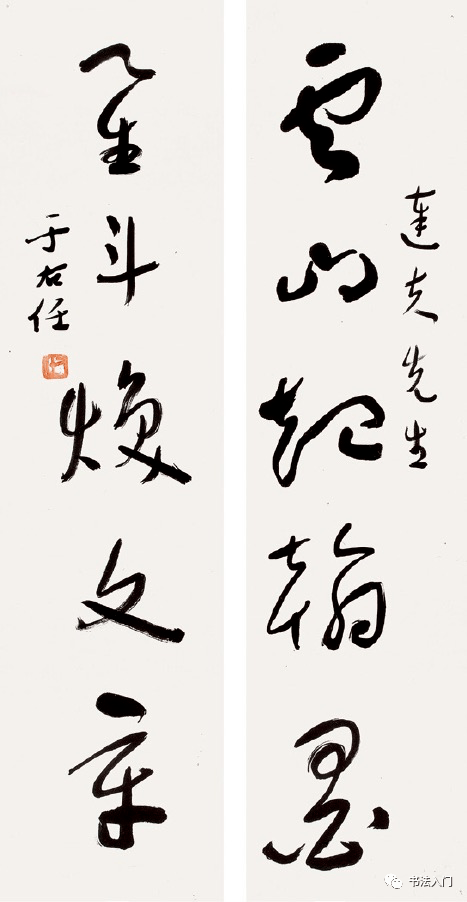 達夫先生
雲山起翰墨
星斗煥文章
于右任
书法入门